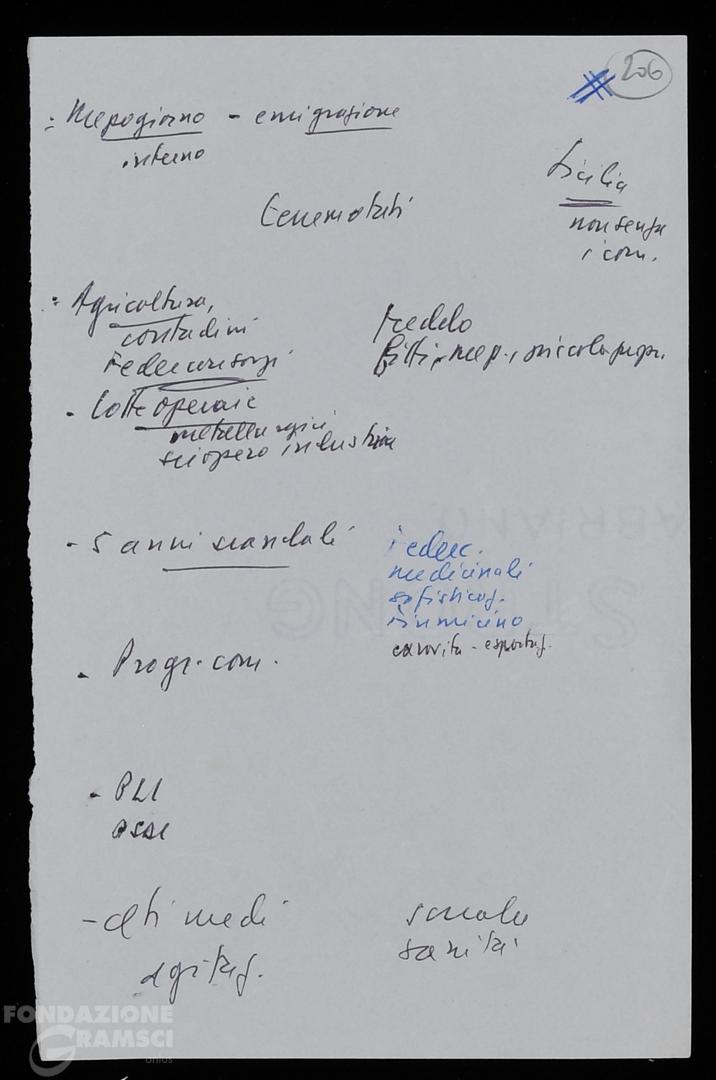 206
= Mezzogiorno - emigrazione
interno
Sicilia
non senza
i com.
Terremotati
= Agricoltura,
contadini
Federconsorzi
freddo
fitti, mezz., piccola propr.
- Lotte operaie
metallurgici
sciopero industria
- 5 anni scandali
Federc.
medicinali
sofisticaz.
Fiumicino
carovita - esportaz.
- Progr. com.
- PLI
PSDI
- Ceti medi
agitaz.
scuola
sanità
ABRIANO
STRONG
FONDAZIONE
GRAMSCI
onlus